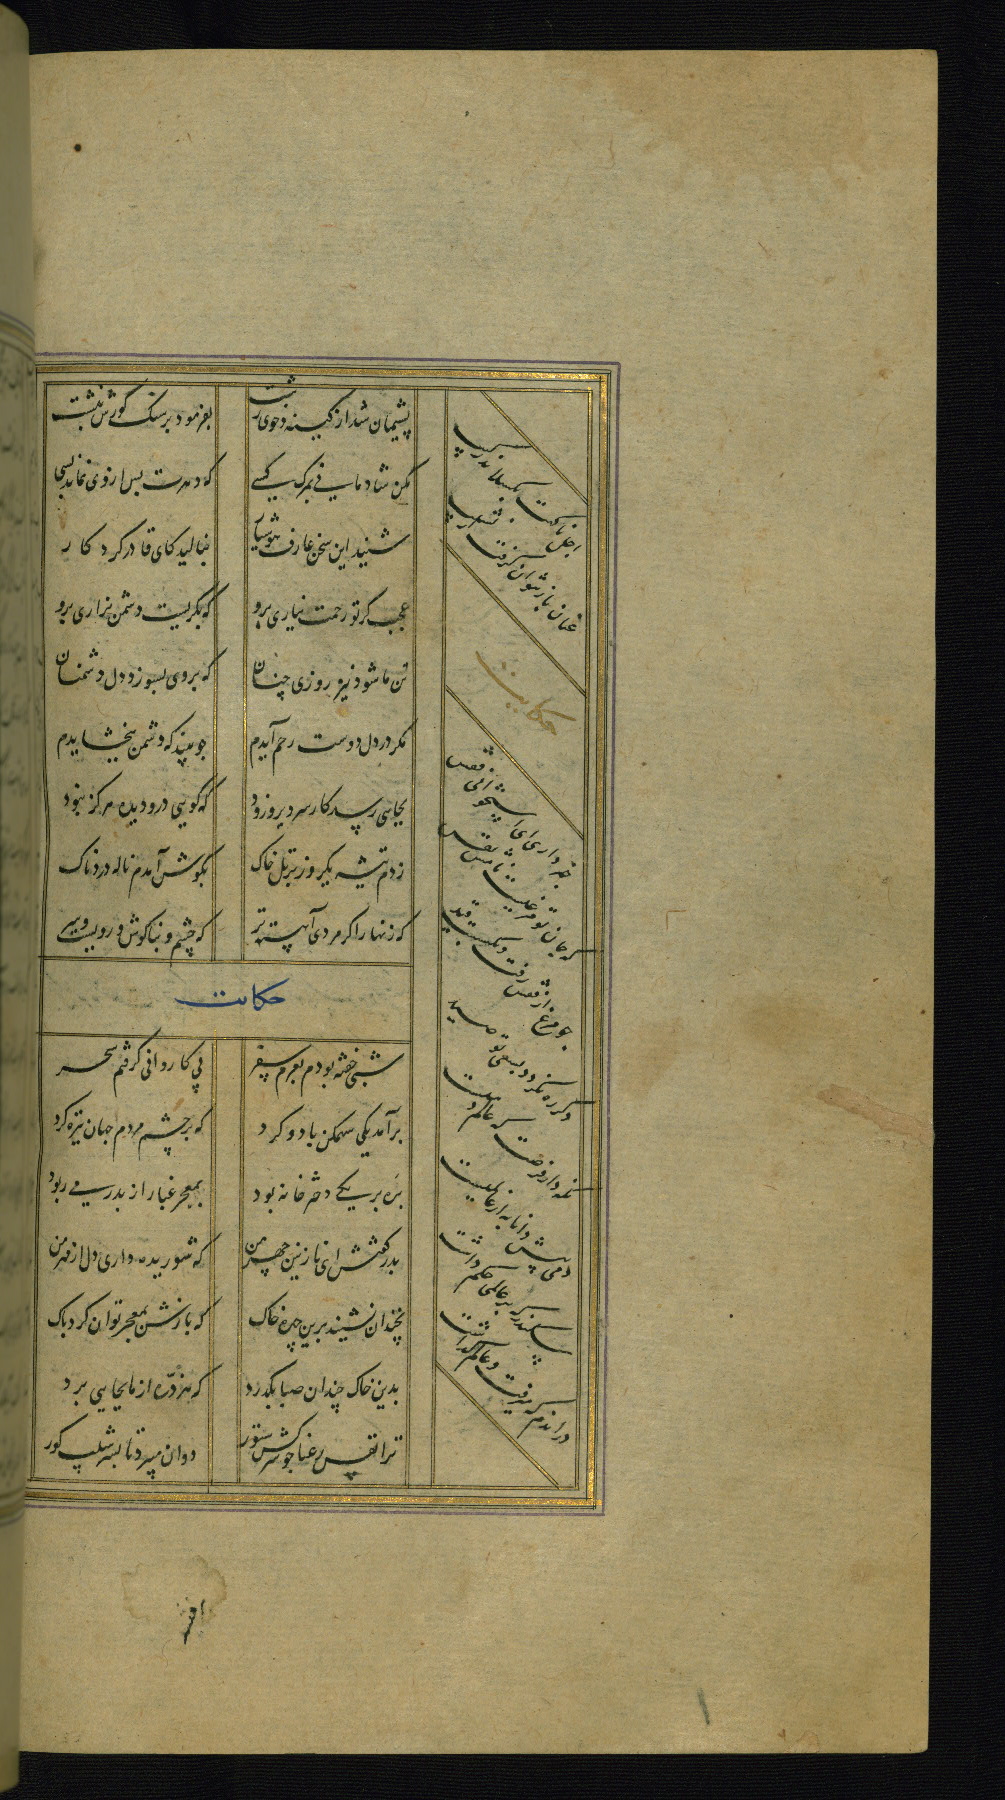 پشیمان شد از کینه و خوی زشت بفرمود بر سنک کورش نبشت
مکن شادمانی بمرک کسی که دهرت پس از وی نماند بسی
شنید این سخن عارف هوشیار بنالید کای قادر کردکار
عجب کر تو رحمت نیاری برو که بکریست دشمن بزاری برو
تن ما شود نیز روزی چنان که بروی بسوزد دل دشمنان
مکر در دل دوست رحم آیدم چو بیند که دشمن ببخشایدم
بجایی رسد کار سر دیر و زود که کویی درو دیده هرکز نبود
زدم تیشه یکروز بر تل خاک بکوش آمدم ناله دردناک
که زنهار اکر مردی آهسته تر که چشم و بناکوش و رویست و سر
حکایت
شبی خفته بودم بعزم سفر پی کاروانی کرفتم سحر
برآمد یکی سهمکن باد و کرد که بر چشم مردم جهان تیره کرد
بره بر یکی دختر خانه بود بمعجر غبار از پدر می ربود
پدر کفتش ای نازنین چهر من که شوریده داری دل از مهر من
نچندان نشیند برین چهره خاک که بازش بمعجر توان کرد پاک
بدین خاک چندان صبا بکذرد که هر ذره از ما بجایی برد
ترا نفس رعنا چو سرکش ستور دوان میبرد تا بسر شیب کور
اجل ناکهت بکسلاند رکیب
عنان باز نتوان کرفت از نشیب
حکایت
خبر داری ای استخوانی قفس
که جان تو مرغیست نامش نفس
چو مرغ از قفس رفت و بکسست قید
دکر ره نکردد بسعی تو صید
نکه دار فرصت که عالم دمیست
دمی پیش دانا به از عالمیست
سکندر که بر عالمی حکم داشت
در آندم که میرفت و عالم کذاشت